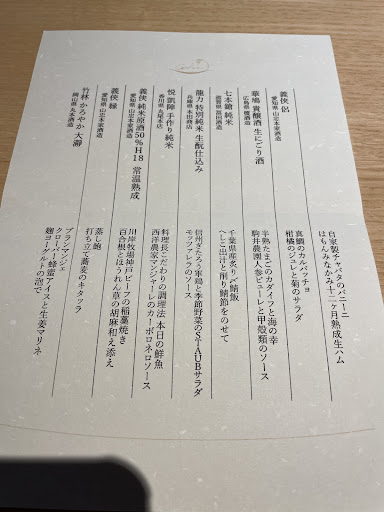 義侠 侶
愛知県 山忠本家酒造
自家製チャバタのパニーニ
はもんみなかみ十二ヶ月熟成生ハム
真鯛のカルパッチョ
柑橘のジュレと菊のサラダ
華鳩 貴醸酒 生にごり酒
広島県 榎酒造
半熟たまごのカダイフと海の幸
駒井農園人参ピューレと甲殻類のソース
七本鎗 純米
滋賀県 冨田酒造
千葉県産炙り〆鯖飯
へしこ出汁と削り鯖節をのせて
龍力 特別純米 生酛仕込み
兵庫県 本田商店
信州ぎたろう軍鶏と季節野菜のSTAUBサラダ
モッツァレラのソース
悦凱陣 手作り純米
香川県 丸尾本店
料理長こだわりの調理法 本日の鮮魚
西洋農家マンジャーレのカーボロネロソース
義侠 純米原酒50% H18 常温熟成
愛知県 山忠本家酒造
川岸牧場神戸ビーフの稲藁焼き
百合根とほうれん草の胡麻和え添え
義侠 縁
愛知県 山忠本家酒造
蒸し鮑
打ち立て蕎麦のキタッラ
竹林 かろやか 大瀞
岡山県 丸本酒造
ブランマンジェ
クローバー蜂蜜アイスと生姜マリネ
麹ヨーグルトの泡で